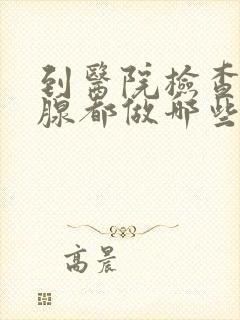 到醫院檢查
腺都做哪些
高晨